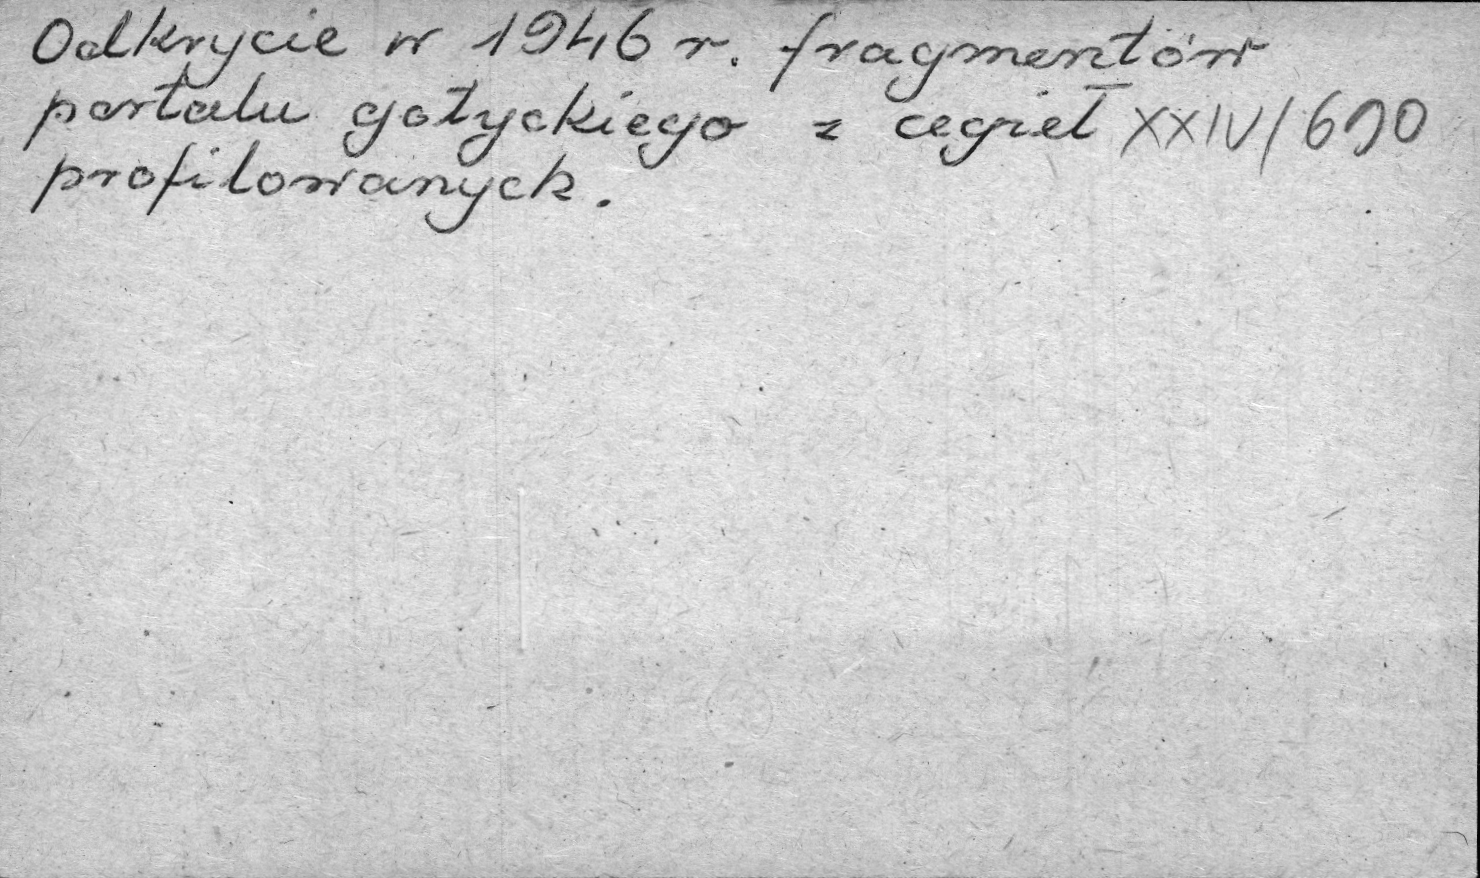 Odkrycie w 1946 r. fragmentów
portalu gotyckiego z cegieł XXIV/690
profilowanych.